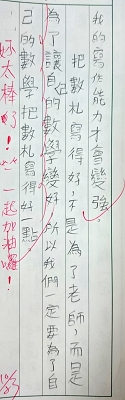 我的寫作能力才會變強。
把數札寫得好不是為了老師，而是
為了讓自己的數學變好，所以我們一定要為了自
己的數學把數札寫得好一點。
妳太棒了！^^一起加油喔！